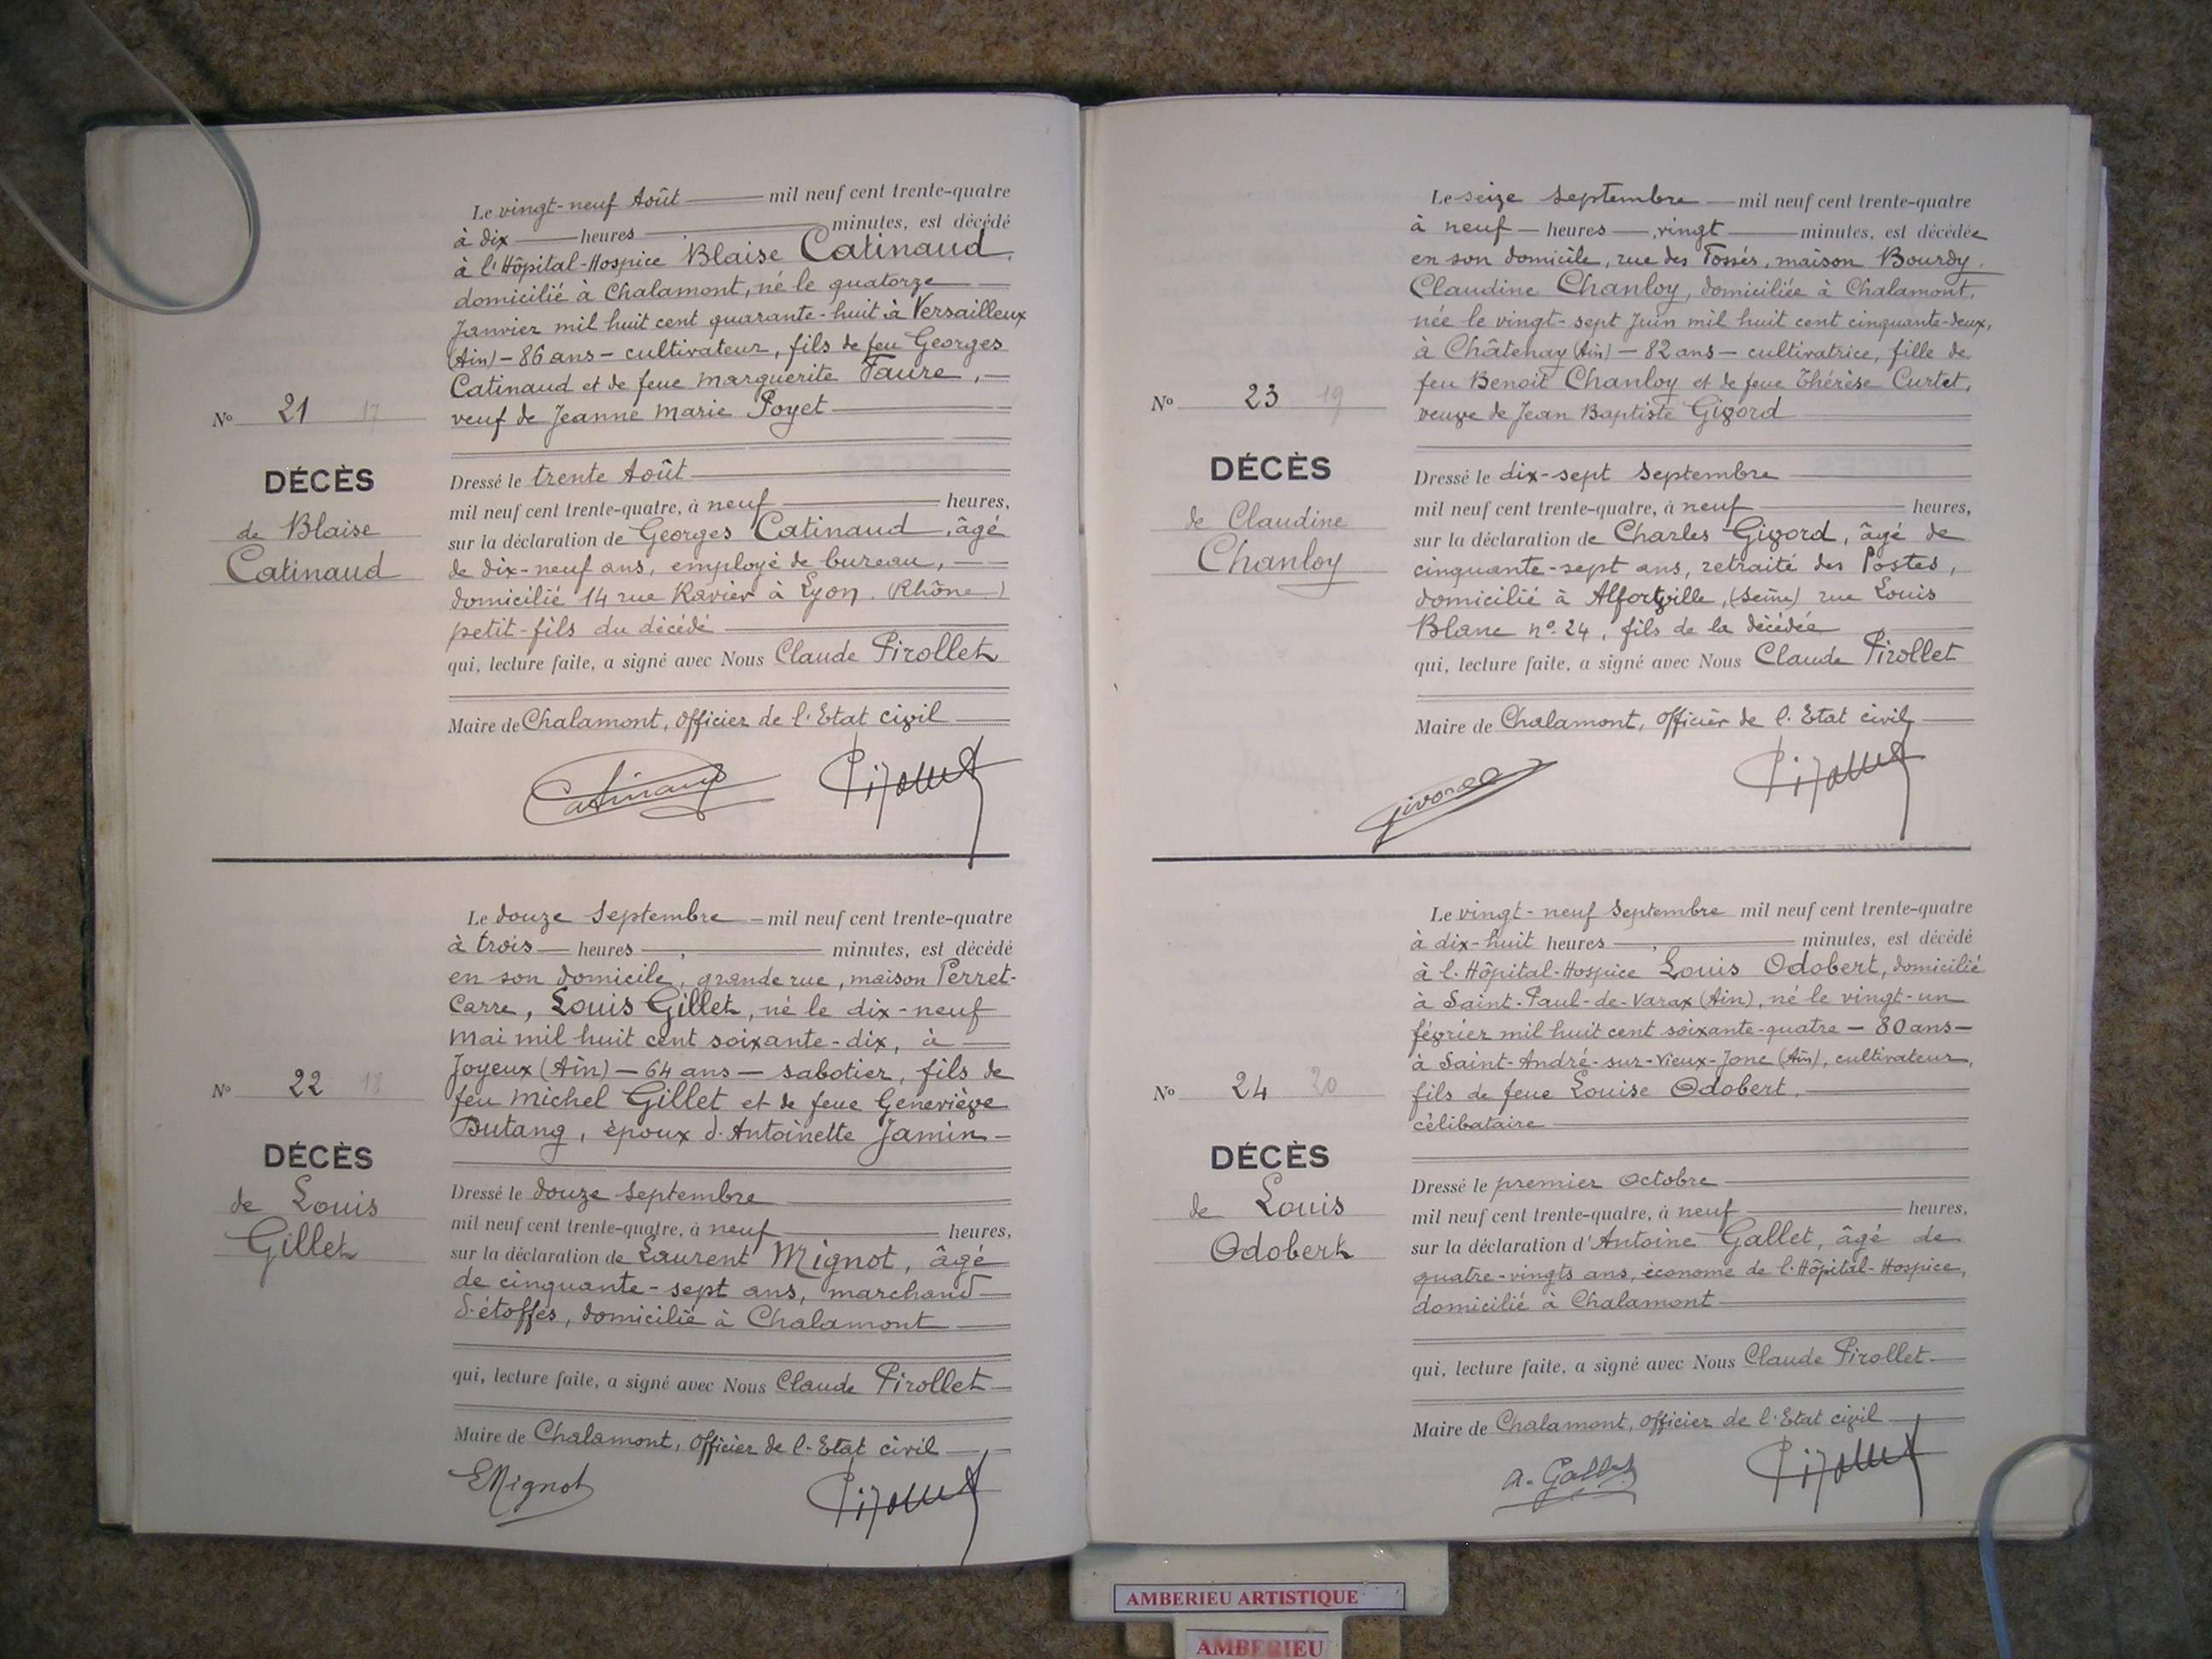 Le vingt-neuf Août mil neuf cent trente-quatre
à dix heures minutes, est décédé
à l'Hôpital-Hospice Blaise Catinaud,
domicilié à Chalamont, né le quatorze
Janvier mil huit cent quarante-huit à Versailleux
(Ain) – 86 ans – cultivateur, fils de feu Georges
Catinaud et de feue Marguerite Faure,
veuf de Jeanne Marie Poyet
No 21 17
DÉCÈS
de Blaise
Catinaud
Dressé le trente Août
mil neuf cent trente-quatre, à neuf heures,
sur la déclaration de Georges Catinaud, âgé
de dix-neuf ans, employé de bureau,
domicilié 14 rue Ravier à Lyon (Rhône)
petit-fils du décédé
qui, lecture faite, a signé avec Nous Claude Pirollet
Maire de Chalamont, Officier de l'Etat civil
Catinaud Pirollet
Le douze Septembre mil neuf cent trente-quatre
à trois heures minutes, est décédé
en son domicile, grande rue, maison Perret-
Carre, Louis Gillet, né le dix-neuf
Mai mil huit cent soixante-dix, à
Joyeux (Ain) – 64 ans – sabotier, fils de
feu Michel Gillet et de feue Geneviève
Dutang, époux d'Antoinette Jamin
No 22 18
DÉCÈS
de Louis
Gillet
Dressé le douze Septembre
mil neuf cent trente-quatre, à neuf heures,
sur la déclaration de Laurent Mignot, âgé
de cinquante-sept ans, marchand
d'étoffes, domicilié à Chalamont
qui, lecture faite, a signé avec Nous Claude Pirollet
Maire de Chalamont, Officier de l'Etat civil
LMignot Pirollet
Le seize Septembre mil neuf cent trente-quatre
à neuf heures vingt minutes, est décédée
en son domicile, rue des Fossés, maison Bourdy
Claudine Chanloy, domiciliée à Chalamont,
née le vingt-sept Juin mil huit cent cinquante-deux,
à Châtenay (Ain) – 82 ans – cultivatrice, fille de
feu Benoit Chanloy et de feue Thérèse Curtet,
veuve de Jean Baptiste Givord
No 23 19
DÉCÈS
de Claudine
Chanloy
Dressé le dix-sept Septembre
mil neuf cent trente-quatre, à neuf heures,
sur la déclaration de Charles Givord, âgé de
cinquante-sept ans, retraité des Postes,
domicilié à Alfortville, (Seine) rue Louis
Blanc no. 24, fils de la décédée
qui, lecture faite, a signé avec Nous Claude Pirollet
Maire de Chalamont, Officier de l'Etat civil
Givord Pirollet
Le vingt-neuf Septembre mil neuf cent trente-quatre
à dix-huit heures minutes, est décédé
à l'Hôpital-Hospice Louis Odobert, domicilié
à Saint-Paul-de-Varax (Ain), né le vingt-un
février mil huit cent soixante-quatre – 80 ans –
à Saint-André-sur-Vieux-Jonc (Ain), cultivateur,
fils de feue Louise Odobert,
célibataire
No 24 20
DÉCÈS
de Louis
Odobert
Dressé le premier Octobre
mil neuf cent trente-quatre, à neuf heures,
sur la déclaration d'Antoine Gallet, âgé de
quatre-vingts ans, économe de l'Hôpital-Hospice,
domicilié à Chalamont
qui, lecture faite, a signé avec Nous Claude Pirollet
Maire de Chalamont, Officier de l'Etat civil
A. Gallet Pirollet
AMBERIEU ARTISTIQUE
AMBERIEU